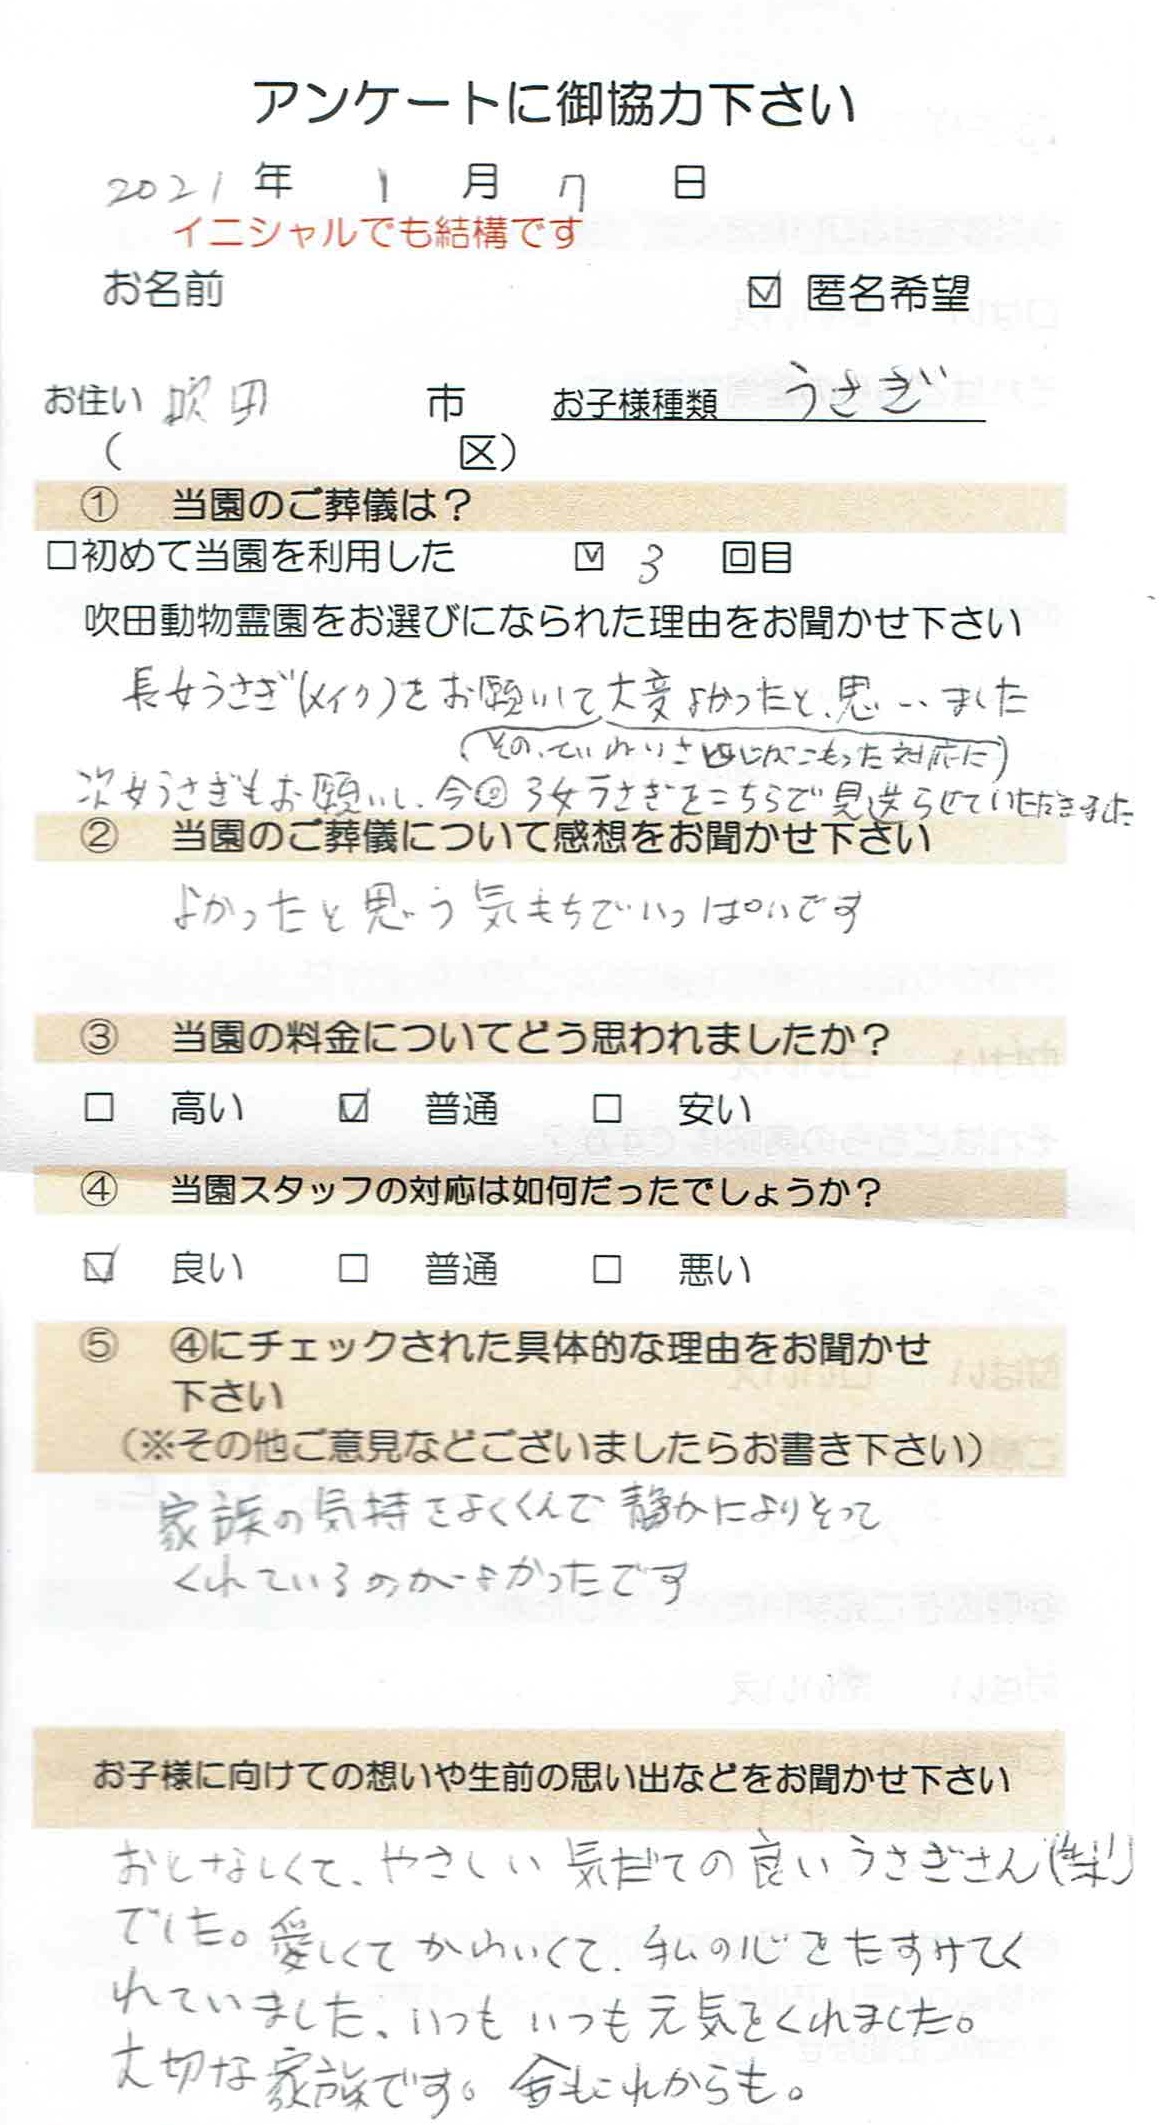 アンケートに御協力下さい
2021 年 1 月 7 日
イニシャルでも結構です
お名前 ☑ 匿名希望
お住い 吹田 市 お子様種類 うさぎ
( 区)
① 当園のご葬儀は?
□初めて当園を利用した ☑ 3 回目
吹田動物霊園をお選びになられた理由をお聞かせ下さい
長女うさぎ(メイク)をお願いして大変よかったと、思いました
(その、ていねいさ 心がこもった対応に)
次女うさぎもお願いし、今回3女うさぎをこちらで見送らせていただきました
② 当園のご葬儀について感想をお聞かせ下さい
よかったと思う気もちでいっぱいです
③ 当園の料金についてどう思われましたか?
□ 高い ☑ 普通 □ 安い
④ 当園スタッフの対応は如何だったでしょうか?
☑ 良い □ 普通 □ 悪い
⑤ ④にチェックされた具体的な理由をお聞かせ
下さい
(※その他ご意見などございましたらお書き下さい)
家族の気持をよくくんで静かによりそって
くれているのがよかったです
お子様に向けての想いや生前の思い出などをお聞かせ下さい
おとなしくて、やさしい気だての良いうさぎさん
でした。愛しくてかわいくて、私の心をたすけてく
れていました、いつもいつも元気をくれました。
大切な家族です。今もこれからも。